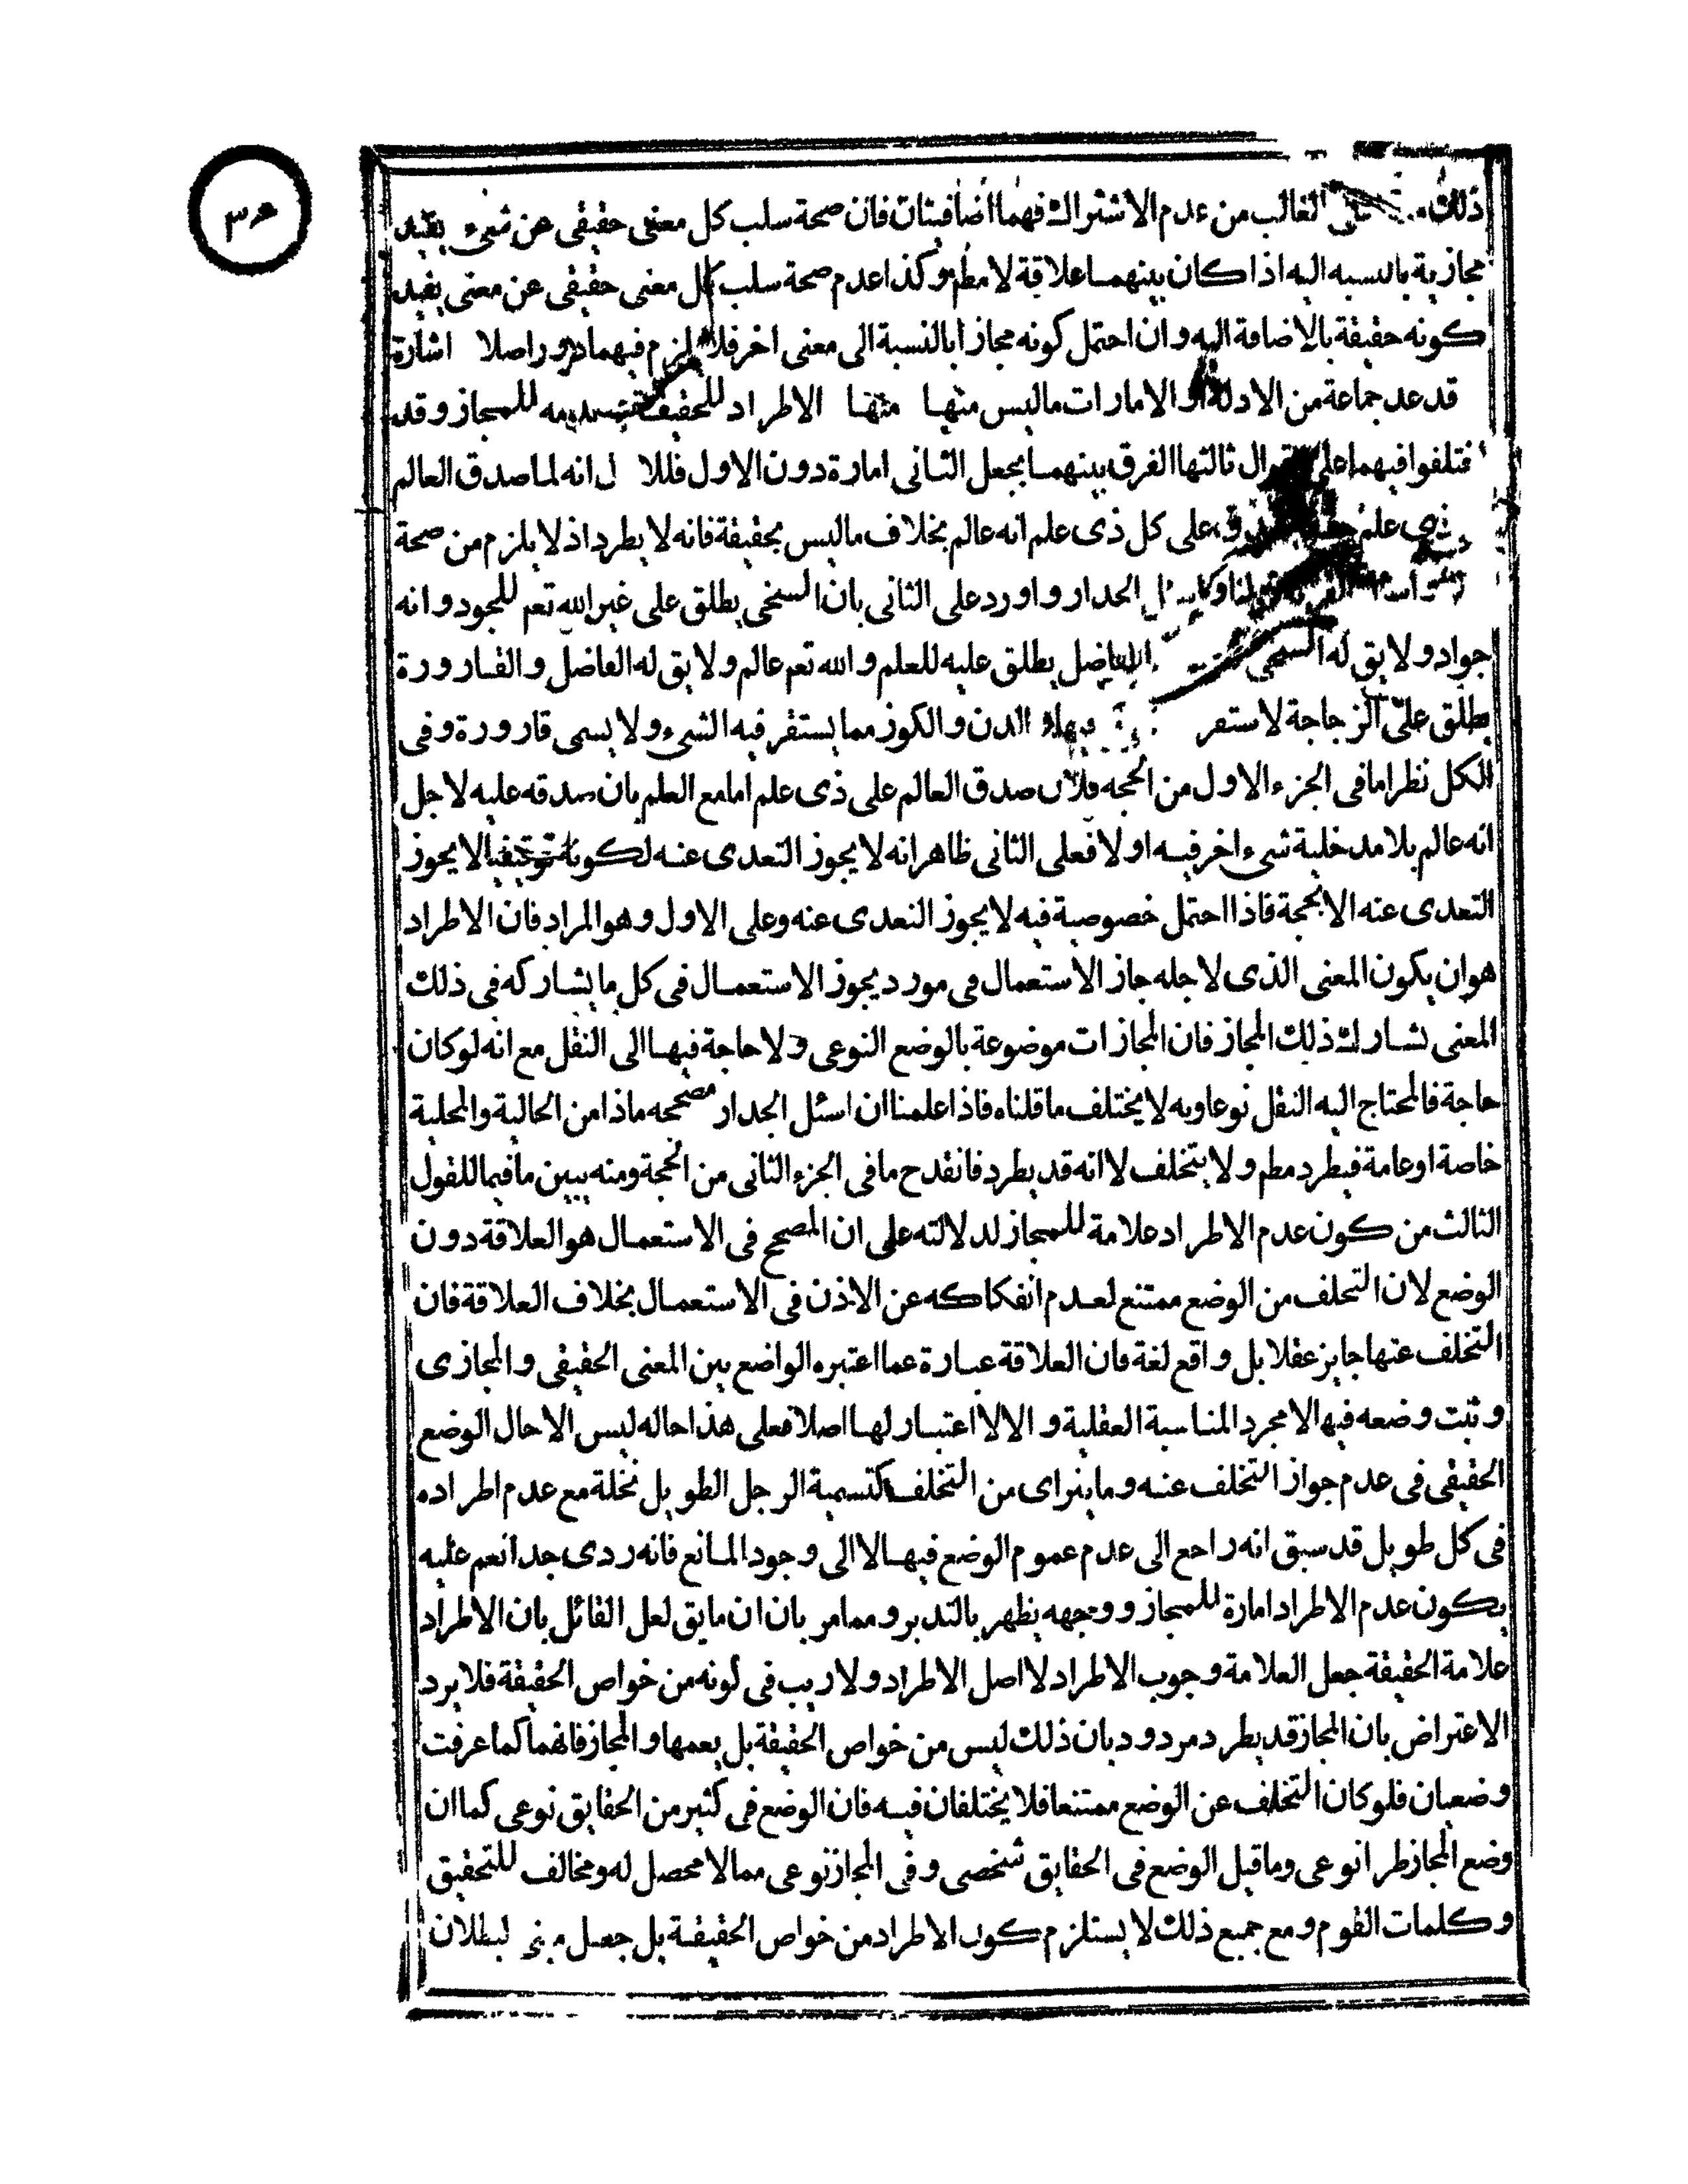 ذلك على الغالب من عدم الاشتراك فهما اضافيتان فان صحة سلب كل معنى حقيقى عن شىء يفيد
مجازية بالنسبه اليه اذا كان بينهما علاقة لا مطم وكذا عدم صحة سلب كل معنى حقيقى عن معنى يفيد
كونه حقيقة بالاضافة اليه وان احتمل كونه مجازا بالنسبة الى معنى اخر فلا يلزم فيهما دور اصلا اشارة
قد عد جماعة من الادلة او الامارات ما ليس منها منها الاطراد للحقيقة وعدمه للمجاز وقد
اختلفوا فيهما على اقوال ثالثها الفرق بينهما بجعل الثانى امارة دون الاول فللا ل انه لما صدق العالم
على ذى علم على كل ذى علم انه عالم بخلاف ما ليس بحقيقة فانه لا يطرد اذ لا يلزم من صحة
الجدار واورد على الثانى بان السخى يطلق على غير الله تعم للجود وانه
جواد ولا يق له السخى الفاضل يطلق عليه للعلم والله تعم عالم ولا يق له الفاضل والقارورة
يطلق على الزجاجة لاستقر الدن والكوز مما يستقر فيه الشىء ولا يسمى قارورة وفى
الكل نظر اما فى الجزء الاول من الحجه فلان صدق العالم على ذى علم اما مع العلم بان صدقه عليه لاجل
انه عالم بلا مدخلية شىء اخر فيه اولا فعلى الثانى ظاهر انه لا يجوز التعدى عنه لكونه توقيفيا لا يجوز
التعدى عنه الا بحجة فاذا احتمل خصوصية فيه لا يجوز التعدى عنه وعلى الاول وهو المراد فان الاطراد
هو ان يكون المعنى الذى لاجله جاز الاستعمال فى مورد يجوز الاستعمال فى كل ما يشاركه فى ذلك
المعنى تشارك ذلك المجاز فان المجازات موضوعة بالوضع النوعى ولا حاجة فيها الى النقل مع انه لو كان
حاجة فالمحتاج اليه النقل نوعا وبه لا يختلف ما قلناه فاذا علمنا ان اسئل الجدار مصححه ماذا من الحالية والمحلية
خاصة او عامة فيطرد مطم ولا يتخلف لا انه قد يطرد فانقدح ما فى الجزء الثانى من الحجة ومنه يبين ما فيما للقول
الثالث من كون عدم الاطراد علامة للمجاز لدلالته على ان المصحح فى الاستعمال هو العلاقة دون
الوضع لان التخلف من الوضع ممتنع لعدم انفكاكه عن الاذن فى الاستعمال بخلاف العلاقة فان
التخلف عنها جايز عقلا بل واقع لغة فان العلاقة عبارة عما اعتبره الواضع بين المعنى الحقيقى والمجازى
وثبت وضعه فيها لا مجرد المناسبة العقلية والا لا اعتبار لها اصلا فعلى هذا حاله ليس الا حال الوضع
الحقيقى فى عدم جواز التخلف عنه وما يتراى من التخلف كتسمية الرجل الطويل نخلة مع عدم اطراده
فى كل طويل قد سبق انه راجع الى عدم عموم الوضع فيها لا الى وجود المانع فانه ردى جدا نعم عليه
يكون عدم الاطراد امارة للمجاز ووجهه يظهر بالتدبر ومما مر بان ان ما يق لعل القائل بان الاطراد
علامة الحقيقة جعل العلامة وجوب الاطراد لا اصل الاطراد ولا ريب فى كونه من خواص الحقيقة فلا يرد
الاعتراض بان المجاز قد يطرد مردود بان ذلك ليس من خواص الحقيقة بل يعمها والمجاز فانهما كما عرفت
وضعيان فلو كان التخلف عن الوضع ممتنعا فلا يختلفان فيه فان الوضع فى كثير من الحقايق نوعى كما ان
وضع المجاز طرا نوعى وما قيل الوضع فى الحقايق شخصى وفى المجاز نوعى مما لا محصل له ومخالف للتحقيق
وكلمات القوم ومع جميع ذلك لا يستلزم كون الاطراد من خواص الحقيقة بل جعل لبطلان